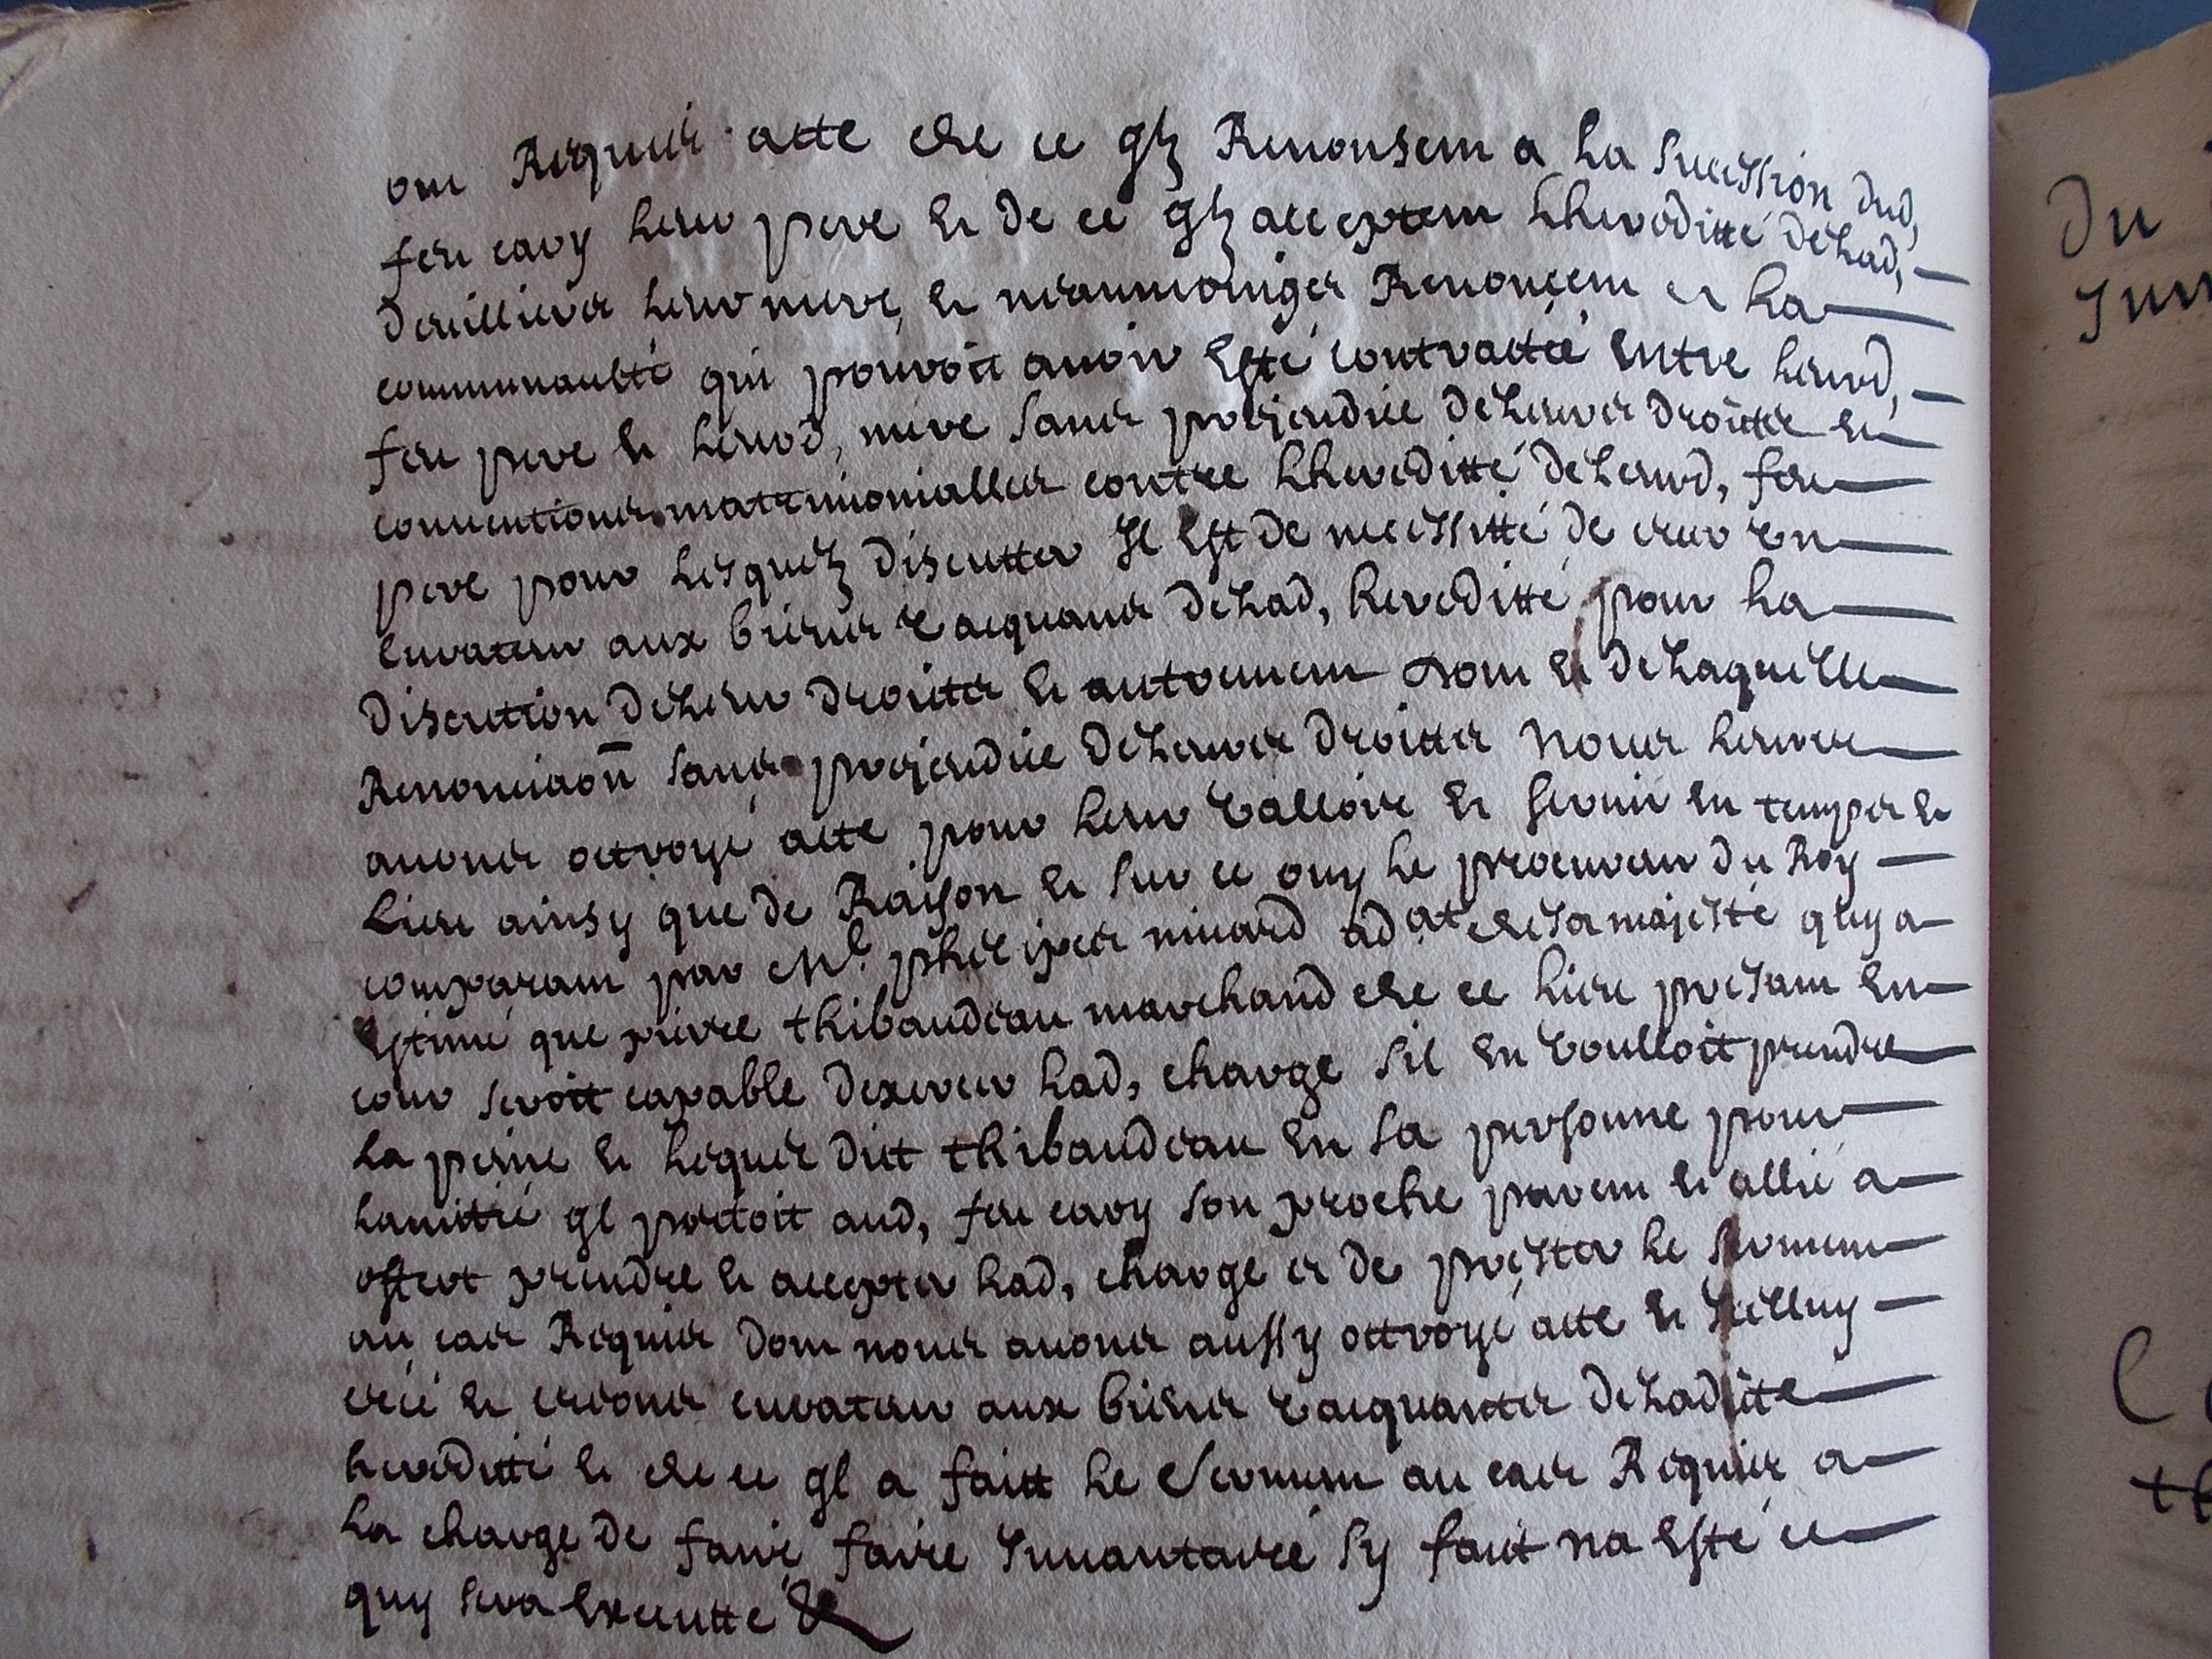 ont Requis acte de ce qlz Renonsent a la succession dud,
feu cavy leur pere et de ce qlz acceptent lhereditté de lad,
deuilliers leur mere, et neanmoinges Renoncent a la
communaulté qui pouvoit avoir esté contractée entre leurd,
feu pere et leurd, mere sans prejeudice de leurs droittz et
conventions matrimonialles contre lhereditté de leurd, feu
pere pour lesquelz discutter Il est de necessitté de creer un
curateur aux biens vacquans de lad, hereditté pour la
discution de leur droittz et autrement dont et de laquelle
Renonciaon sans prejeudice de leurs droittz nous leurs
avons octroyé acte pour leur valloir et servir en temps et
lieu ainsy que de Raison et sur ce ouy le procureur du Roy
comparant par Me phelipes minard adat de sa majesté quy a
estimé que pierre thibaudeau marchand de ce lieu present en
cour seroit capable dexercer lad, charge sil en voulloit prendre
la peine et lequel dict thibaudeau en sa personne pour
lamittié ql portoit aud, feu cavy son proche parent et allié a
offert prendre et accepter lad, charge et de prester le serment
au cas Requis dont nous avons aussy octroyé acte et Icelluy
créé et creons curateur aux biens vacquantz de ladite
hereditté et de ce ql a faict le serment au cas Requis a
la charge de faire faire Inventaire sy faict na esté ce
quy sera executté &
Du